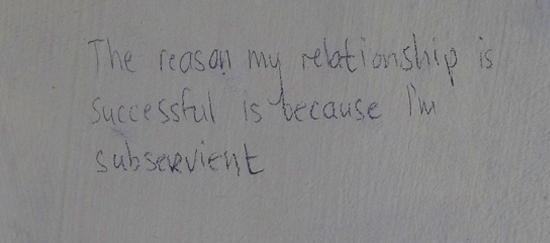 The reason my relationship is
successful is because I'm
subservient